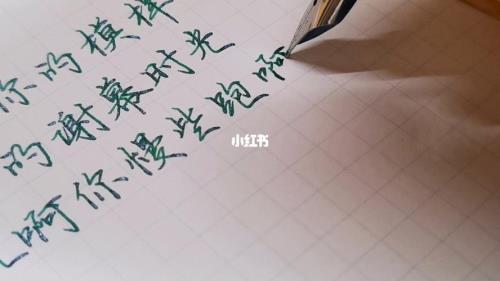 你的模样
的谢幕时光
啊你慢些跑
小红书